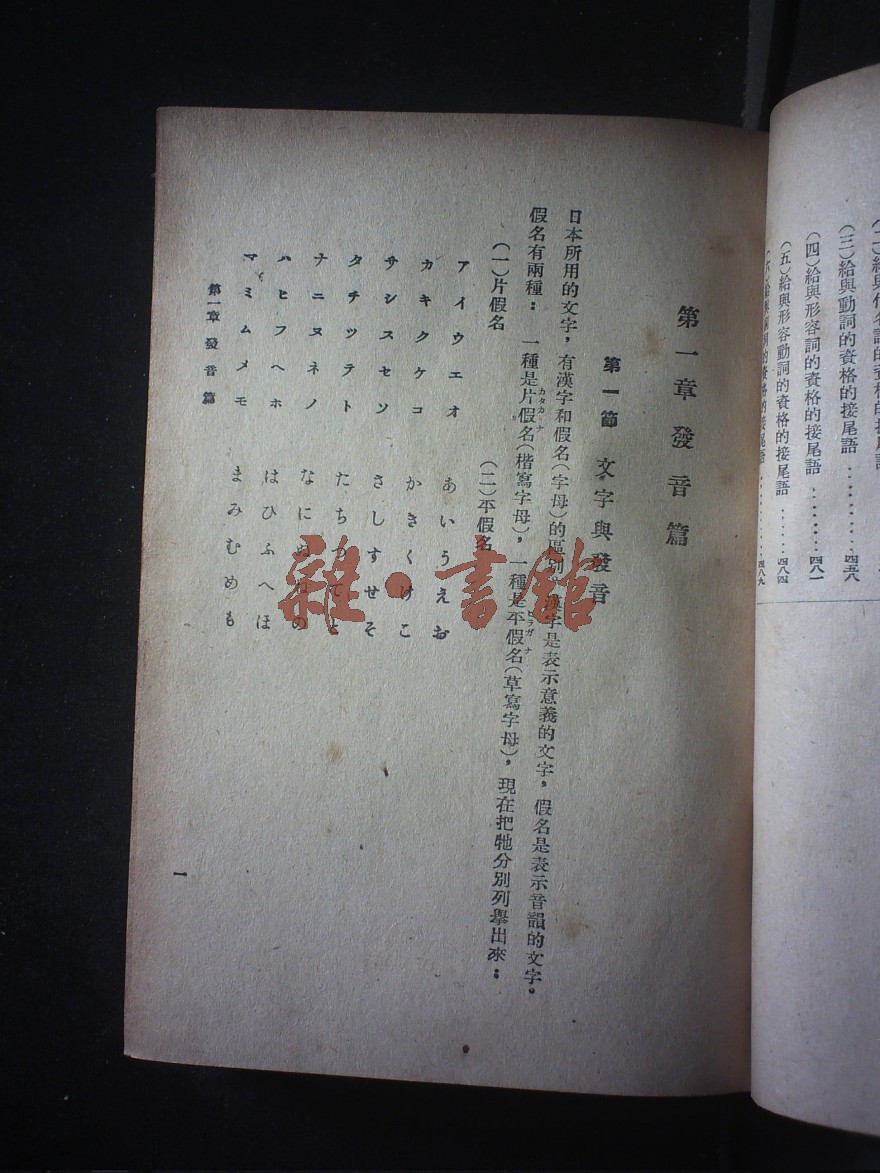 (三)給與動詞的資格的接尾語………四五八
(四)給與形容詞的資格的接尾語………四八一
(五)給與形容動詞的資格的接尾語……四八四
四八九
第一章 發音篇
第一節 文字與發音
日本所用的文字，有漢字和假名(字母)的區別。漢字是表示意義的文字，假名是表示音韻的文字。
假名有兩種：一種是片假名(楷寫字母)，一種是平假名(草寫字母)，現在把牠分別列舉出來：
カタカーナ
ヒラガナ
(一)片假名
(二)平假名
アイウエオ
あいうえお
カキクケコ
かきくけこ
サシスセソ
さしすせそ
タチツテト
たちつてと
ナニヌネノ
なにぬねの
ハヒフヘホ
はひふへほ
マミムメモ
まみむめも
第一章 發音篇
一
雜·書館